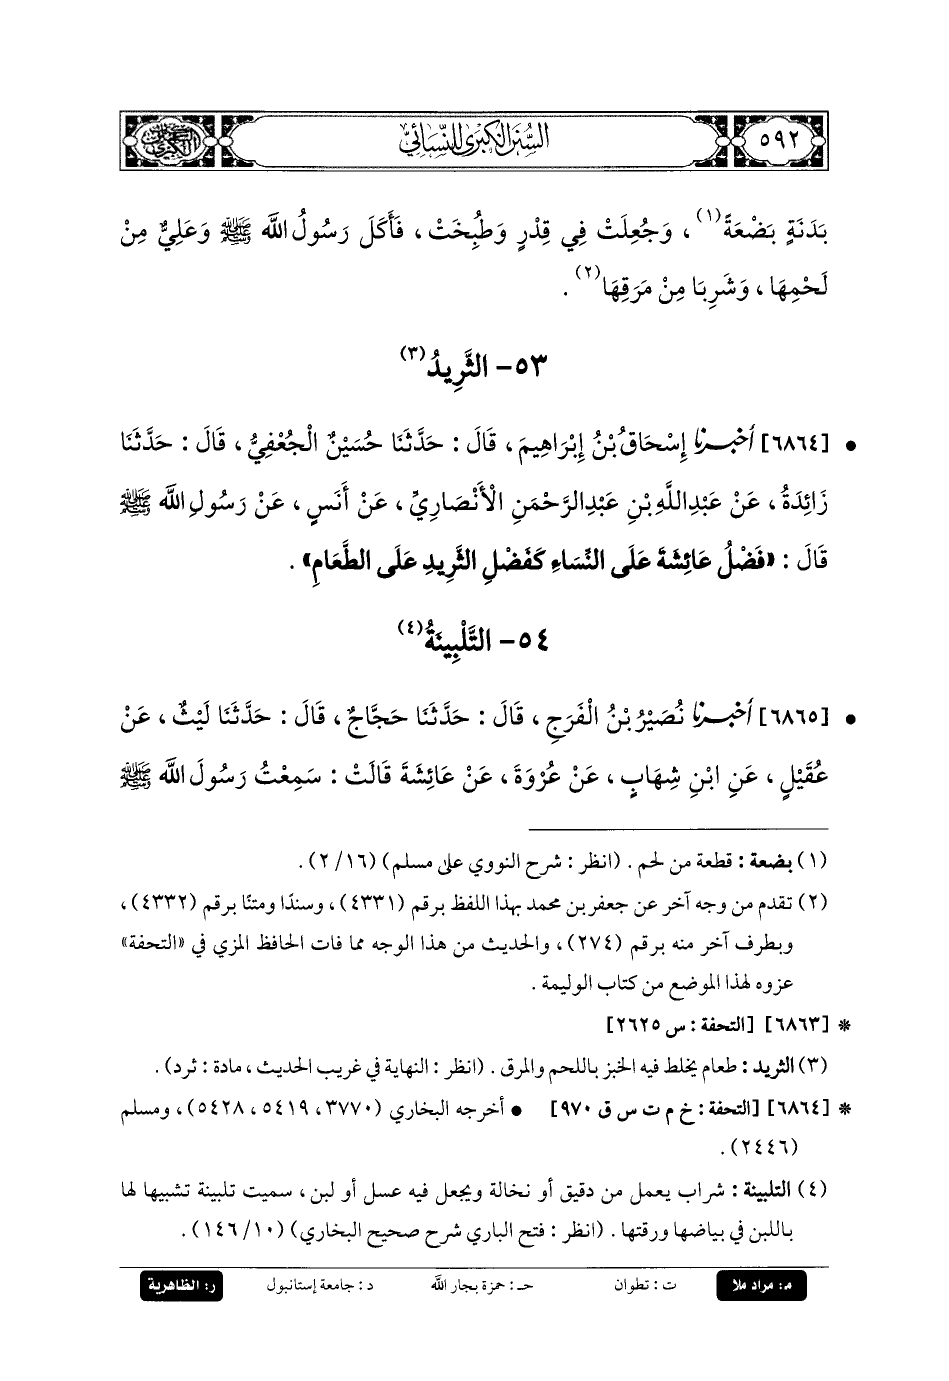 ٥٩٢
السنن الكبرى للنسائي
بَدَنَةٍ بَضْعَةً(١)، وَجُعِلَتْ فِي قِدْرٍ وَطُبِخَتْ، فَأَكَلَ رَسُولُ اللَّه ﷺ وَعَلِيٌّ مِنْ
لَحْمِهَا، وَشَرِبَا مِنْ مَرَقِهَا(٢).
٥٣- الثَّرِيدُ(٣)
• [٦٨٦٤] أخبرنا إِسْحَاقُ بْنُ إِبْرَاهِيمَ، قَالَ: حَدَّثَنَا حُسَيْنٌ الْجُعْفِيُّ، قَالَ: حَدَّثَنَا
زَائِدَةُ، عَنْ عَبْدِاللَّهِ بْنِ عَبْدِالرَّحْمَنِ الْأَنْصَارِيِّ، عَنْ أَنَسٍ، عَنْ رَسُولِ اللَّه ﷺ
قَالَ: «فَضْلُ عَائِشَةَ عَلَى النِّسَاءِ كَفَضْلِ الثَّرِيدِ عَلَى الطَّعَامِ».
٥٤- التَّلْبِينَةُ(٤)
• [٦٨٦٥] أخبرنا نُصَيْرُ بْنُ الْفَرَجِ، قَالَ: حَدَّثَنَا حَجَّاجٌ، قَالَ: حَدَّثَنَا لَيْثٌ، عَنْ
عُقَيْلٍ، عَنِ ابْنِ شِهَابٍ، عَنْ عُرْوَةَ، عَنْ عَائِشَةَ قَالَتْ: سَمِعْتُ رَسُولَ اللَّه ﷺ
(١) بضعة: قطعة من لحم. (انظر: شرح النووي على مسلم) (١٦/ ٢).
(٢) تقدم من وجه آخر عن جعفر بن محمد بهذا اللفظ برقم (٤٣٣١)، وسندًا ومتنًا برقم (٤٣٣٢)،
وبطرف آخر منه برقم (٢٧٤)، والحديث من هذا الوجه مما فات الحافظ المزي في «التحفة»
عزوه لهذا الموضع من كتاب الوليمة.
* [٦٨٦٣] [التحفة: س ٢٦٢٥]
(٣) الثريد: طعام يخلط فيه الخبز باللحم والمرق. (انظر: النهاية في غريب الحديث، مادة: ثرد).
* [٦٨٦٤] [التحفة: خ م ت س ق ٩٧٠] • أخرجه البخاري (٣٧٧٠، ٥٤١٩، ٥٤٢٨)، ومسلم
(٢٤٤٦).
(٤) التلبينة: شراب يعمل من دقيق أو نخالة ويجعل فيه عسل أو لبن، سميت تلبينة تشبيها لها
باللبن في بياضها ورقتها. (انظر: فتح الباري شرح صحيح البخاري) (١٠/ ١٤٦).
م: مراد ملا ت: تطوان حـ: حمزة بجار اللَّه د: جامعة إستانبول ر: الظاهرية